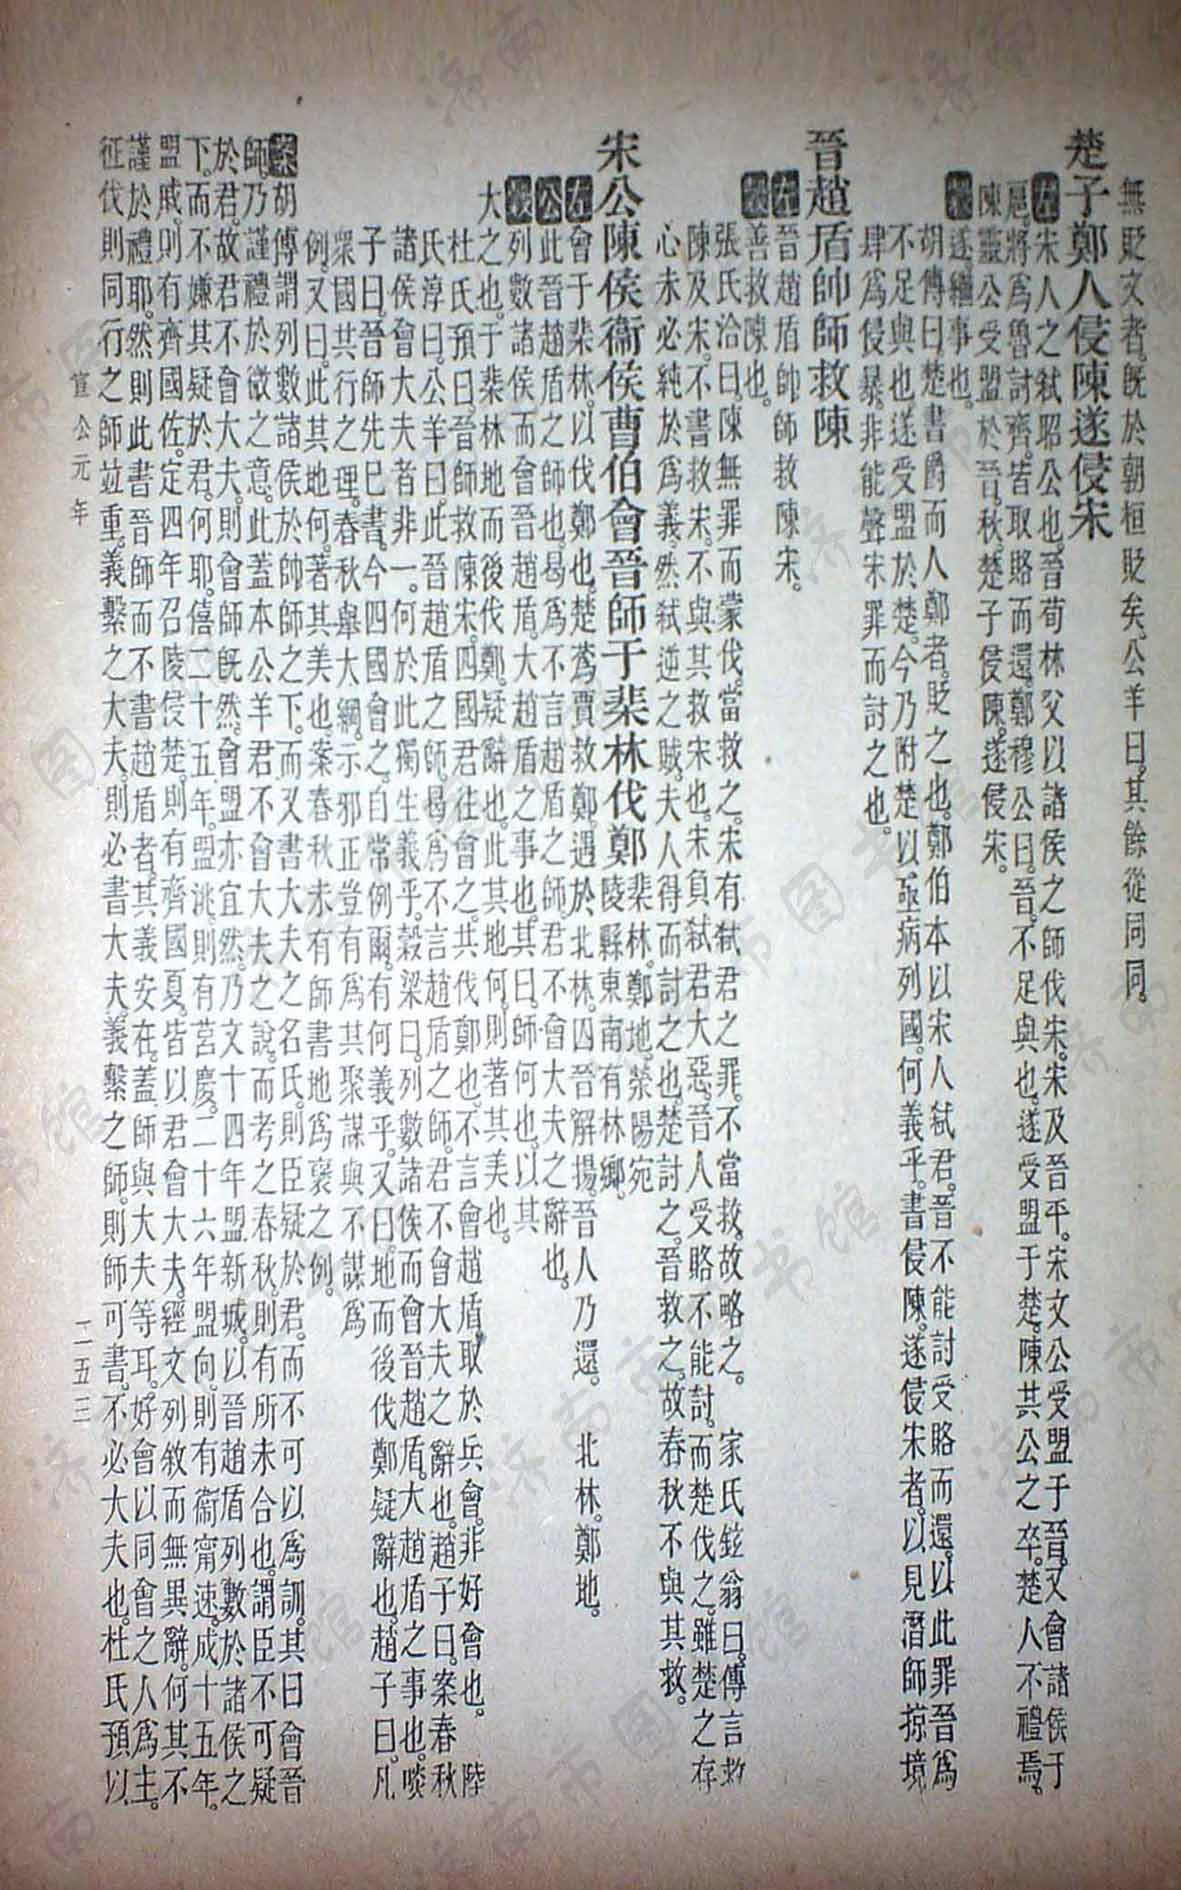 無貶文者。旣於朝桓貶矣。公羊曰。其餘從同同。
楚子鄭人侵陳遂侵宋
左宋人之弒昭公也。晉荀林父以諸侯之師伐宋。宋及晉平。宋文公受盟于晉。又會諸侯于
扈。將爲魯討齊。皆取賂而還。鄭穆公曰。晉不足與也。遂受盟于楚。陳共公之卒。楚人不禮焉。
陳靈公受盟於晉。秋。楚子侵陳。遂侵宋。
遂繼事也。
胡傳曰。楚書爵而人鄭者。貶之也。鄭伯本以宋人弒君。晉不能討受賂而還。以此罪晉爲
不足與也。遂受盟於楚。今乃附楚以亟病列國。何義乎。書侵陳。遂侵宋者。以見潛師掠境
肆爲侵暴。非能聲宋罪而討之也。
晉趙盾帥師救陳
左晉趙盾帥師救陳宋。
穀善救陳也。
張氏洽曰。陳無罪而蒙伐。當救之。宋有弒君之罪。不當救。故略之。 家氏鉉翁曰。傳言救
陳及宋。不書救宋。不與其救宋也。宋負弒君大惡。晉人受賂不能討。而楚伐之。雖楚之存
心未必純於爲義。然弒逆之賊。夫人得而討之也。楚討之。晉救之。故春秋不與其救。
宋公陳侯衞侯曹伯會晉師于棐林伐鄭
棐林。鄭地。滎陽宛
陵縣東南有林鄉。
左會于棐林。以伐鄭也。楚蔿賈救鄭。遇於北林。囚晉解揚。晉人乃還。 北林。鄭地。
公此晉趙盾之師也。曷爲不言趙盾之師。君不會大夫之辭也。
穀列數諸侯而會晉趙盾。大趙盾之事也。其曰。師何也。以其
大之也。于棐林地而後伐鄭。疑辭也。此其地何。則著其美也。
杜氏預曰。晉師救陳宋。四國君往會之。共伐鄭也。不言會趙盾。取於兵會。非好會也。 陸
氏淳曰。公羊曰。此晉趙盾之師。曷爲不言趙盾之師。君不會大夫之辭也。趙子曰。案春秋
諸侯會大夫者非一。何於此獨生義乎。穀梁曰。列數諸侯而會晉趙盾。大趙盾之事也。啖
子曰。晉師先已書。今四國會之。自常例爾。有何義乎。又曰。地而後伐鄭疑辭也。趙子曰。凡
衆國其行之理。春秋舉大綱。示邪正豈有爲其聚謀與不謀爲
例。又曰。此其地何。著其美也。案春秋未有師書地爲襃之例。
案胡傳謂列數諸侯於帥師之下。而又書大夫之名氏。則臣疑於君。而不可以爲訓。其曰會晉
師。乃謹禮於微之意。此蓋本公羊君不會大夫之說。而考之春秋。則有所未合也。謂臣不可疑
於君。故君不會大夫。則會師旣然。會盟亦宜然。乃文十四年盟新城。以晉趙盾列數於諸侯之
下。而不嫌其疑於君。何耶。僖二十五年。盟洮。則有莒慶。二十六年盟向。則有衞甯速。成十五年。
盟戚。則有齊國佐。定四年召陵侵楚。則有齊國夏。皆以君會大夫。經文列敘而無異辭。何其不
謹於禮耶。然則此書晉師而不書趙盾者。其義安在。蓋師與大夫等耳。好會以同會之人爲主。
征伐則同行之師竝重。義繫之大夫。則必書大夫。義繫之師。則師可書。不必大夫也。杜氏預以
宣公元年
二五三